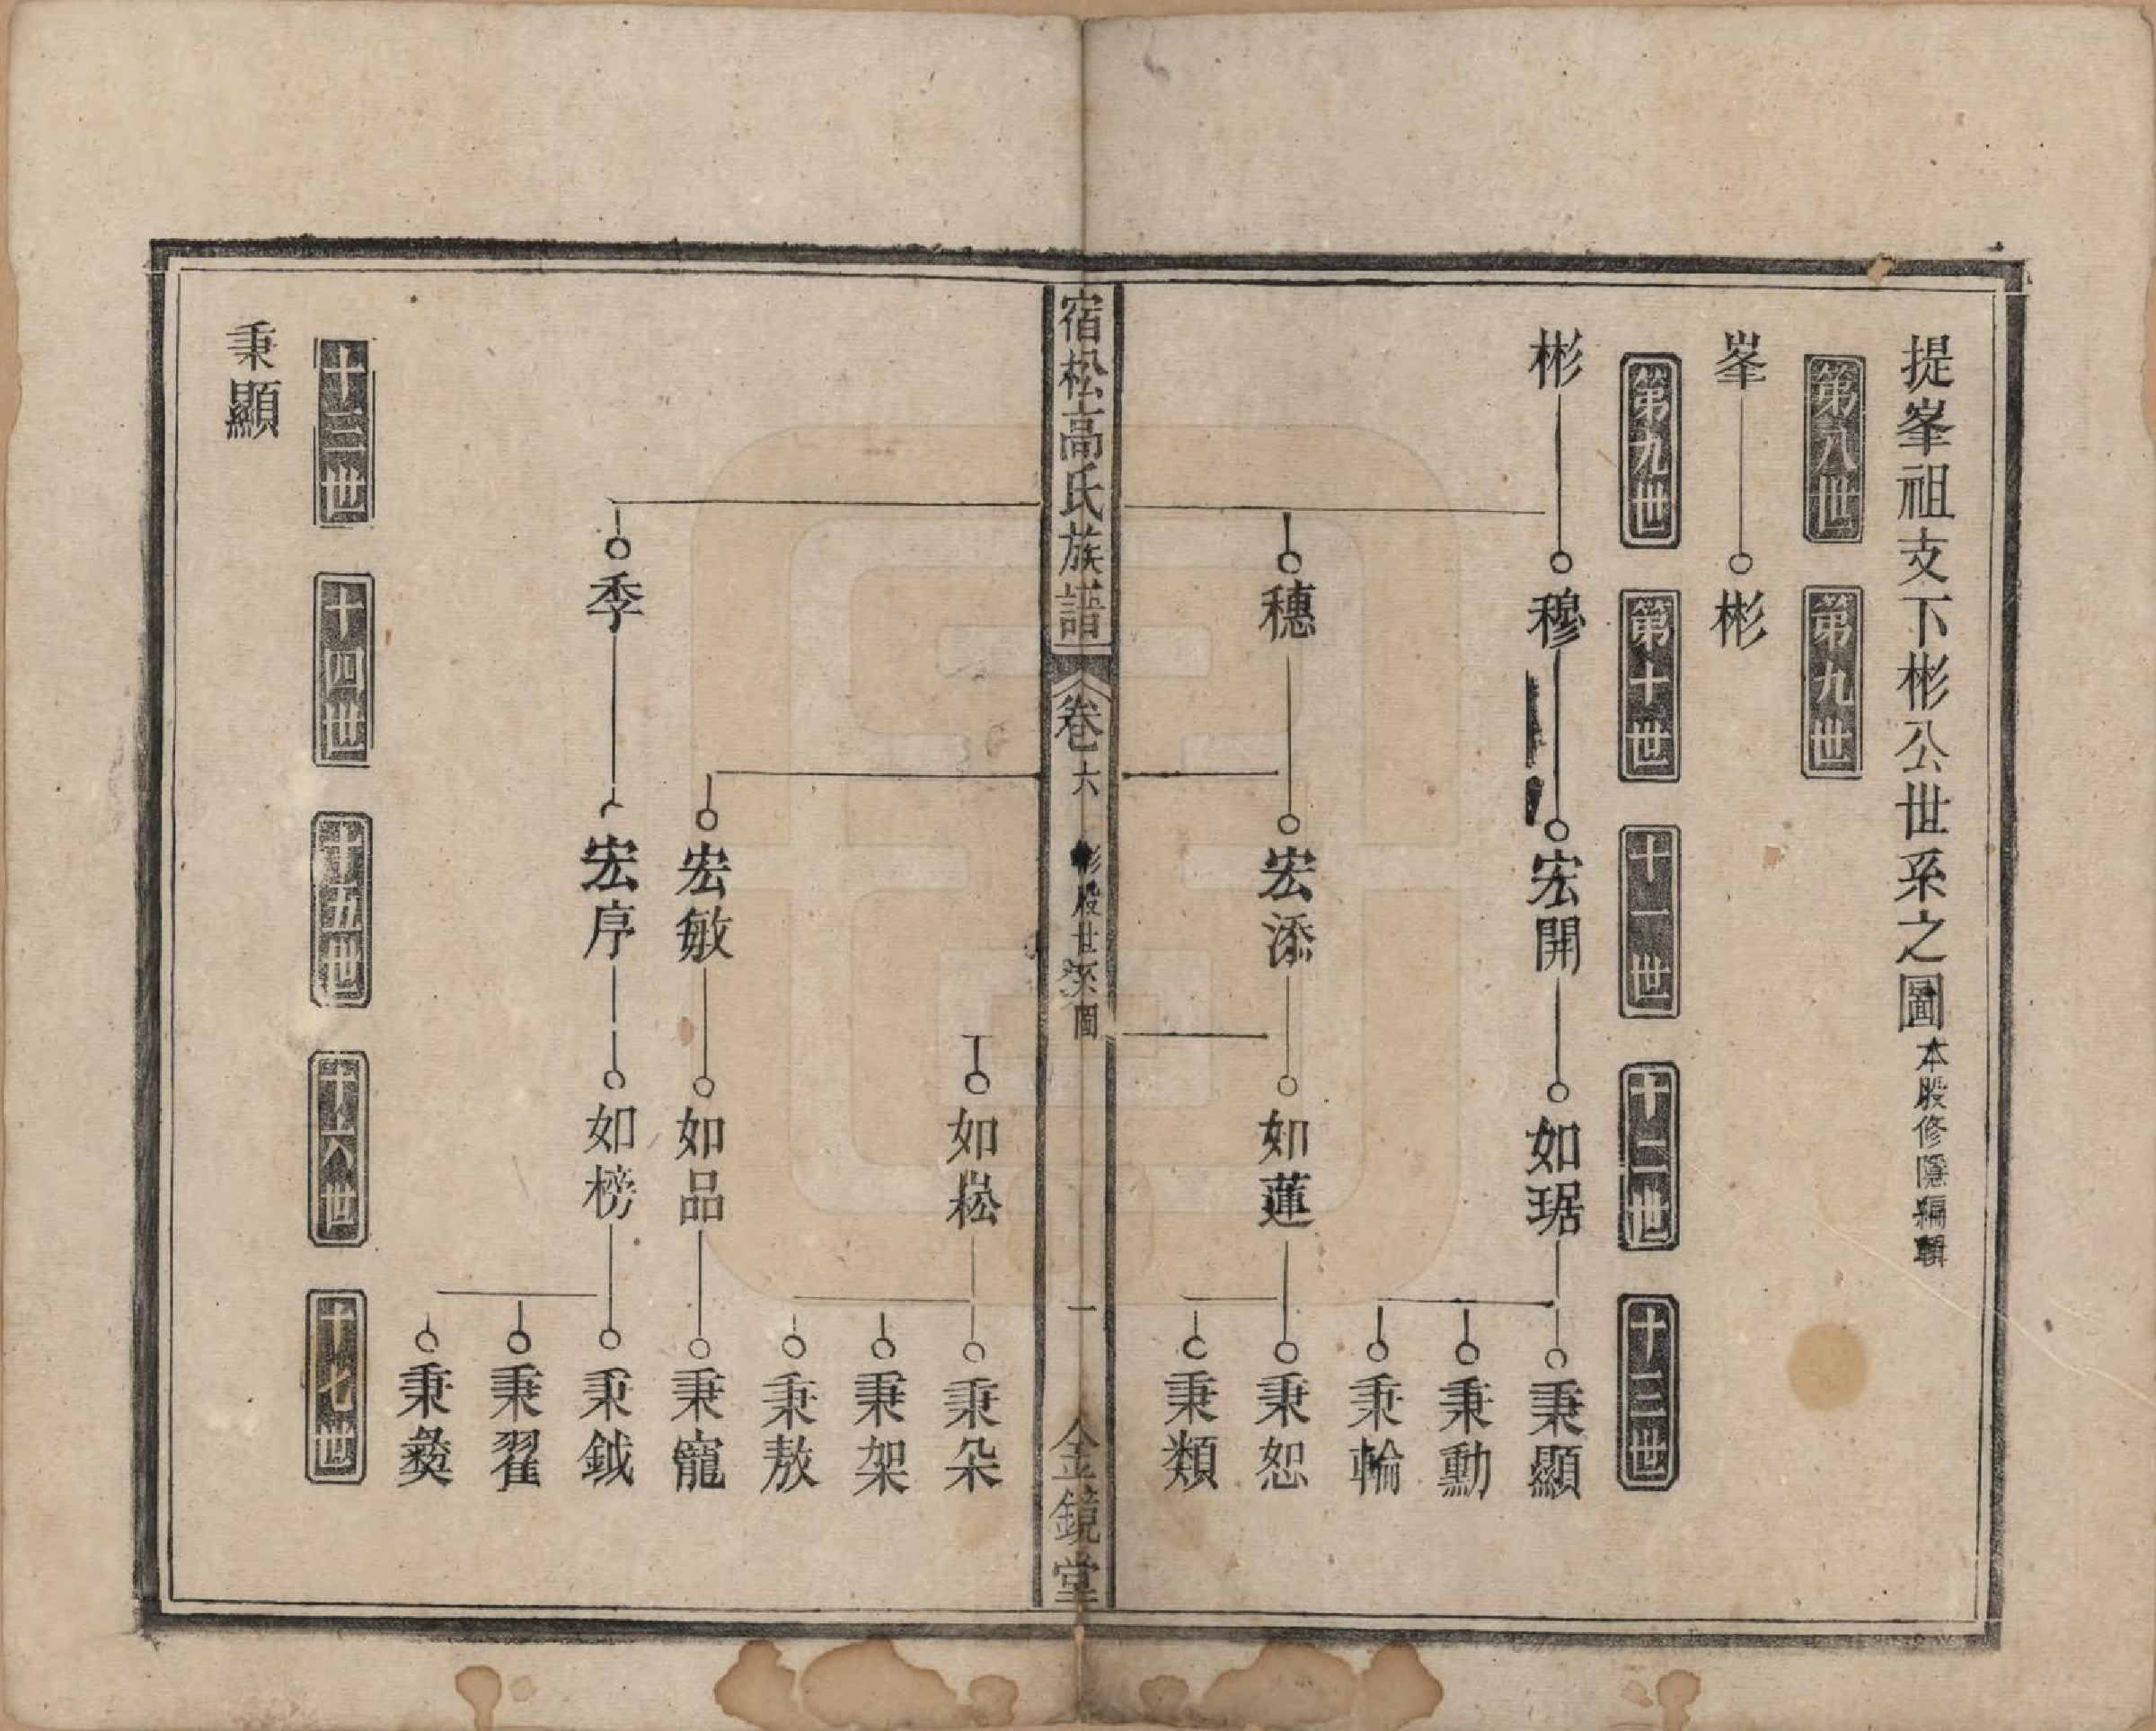 提峯祖支下彬公世系之圖本股修隱編輯
第八世
第九世
峯
彬
第九世
第十世
十一世
十二世
十三世
彬
穆
宏開
如琚
秉顯
秉勳
秉輪
穗
宏添
如蓮
秉恕
秉類
宿松高氏族譜
卷六
彬股世系圖
一
金鏡堂
如崧
秉朵
秉架
秉敖
宏敏
如品
秉寵
季
宏序
如榜
秉鉞
秉翟
秉彝
十三世
十四世
十五世
十六世
十七世
秉顯